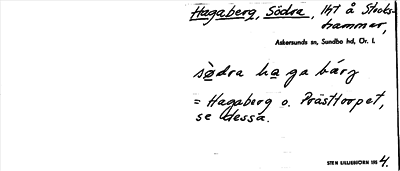 Hagaberg, Södra, lht å Stocks-
hammer,
Askersunds sn, Sundbo hd, Ör. l.
södra ha ga bárg
= Hagaberg o. Prästtorpet,
se dessa.
STEN LILJEBJÖRN 1915 4.